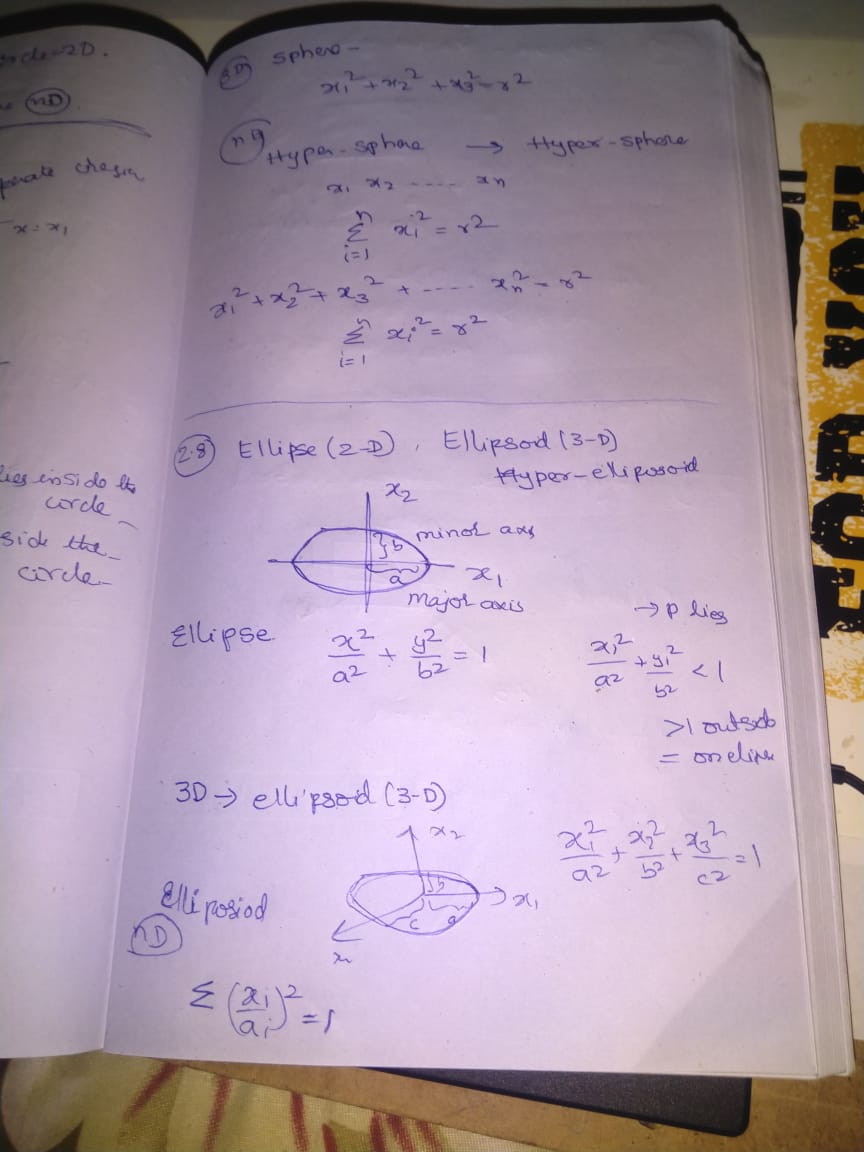 circle-2D.
nD
x = x1
lies inside the
circle
side the
circle
3D sphere-
x1² + x2² + x3² = r²
nD Hyper-sphere → Hyper-sphere
x1 x2 ---- xn
n
Σ xi² = r²
i=1
x1² + x2² + x3² + ---- xn² = r²
n
Σ xi² = r²
i=1
2.8 Ellipse (2-D), Ellipsoid (3-D)
Hyper-elliposoid
x2
b minor axis
a x1
major axis
→ P lies
Ellipse x²/a² + y²/b² = 1
x1²/a² + y1²/b² < 1
>1 outside
= on
3D → ellipsoid (3-D)
x2
x1²/a² + x2²/b² + x3²/c² = 1
b
x1
c a
Elliposiod
nD
Σ (xi/ai)² = 1
FOR